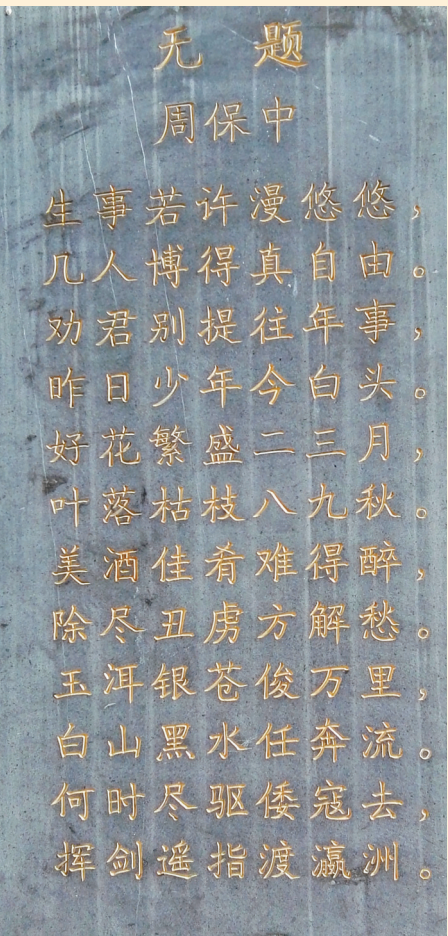 无 题
周保中
生事若许漫悠悠，
几人博得真自由。
劝君别提往年事，
昨日少年今白头。
好花繁盛二三月，
叶落枯枝八九秋。
美酒佳肴难得醉，
除尽丑虏方解愁。
玉洱银苍俊万里，
白山黑水任奔流。
何时尽驱倭寇去，
挥剑遥指渡瀛洲。